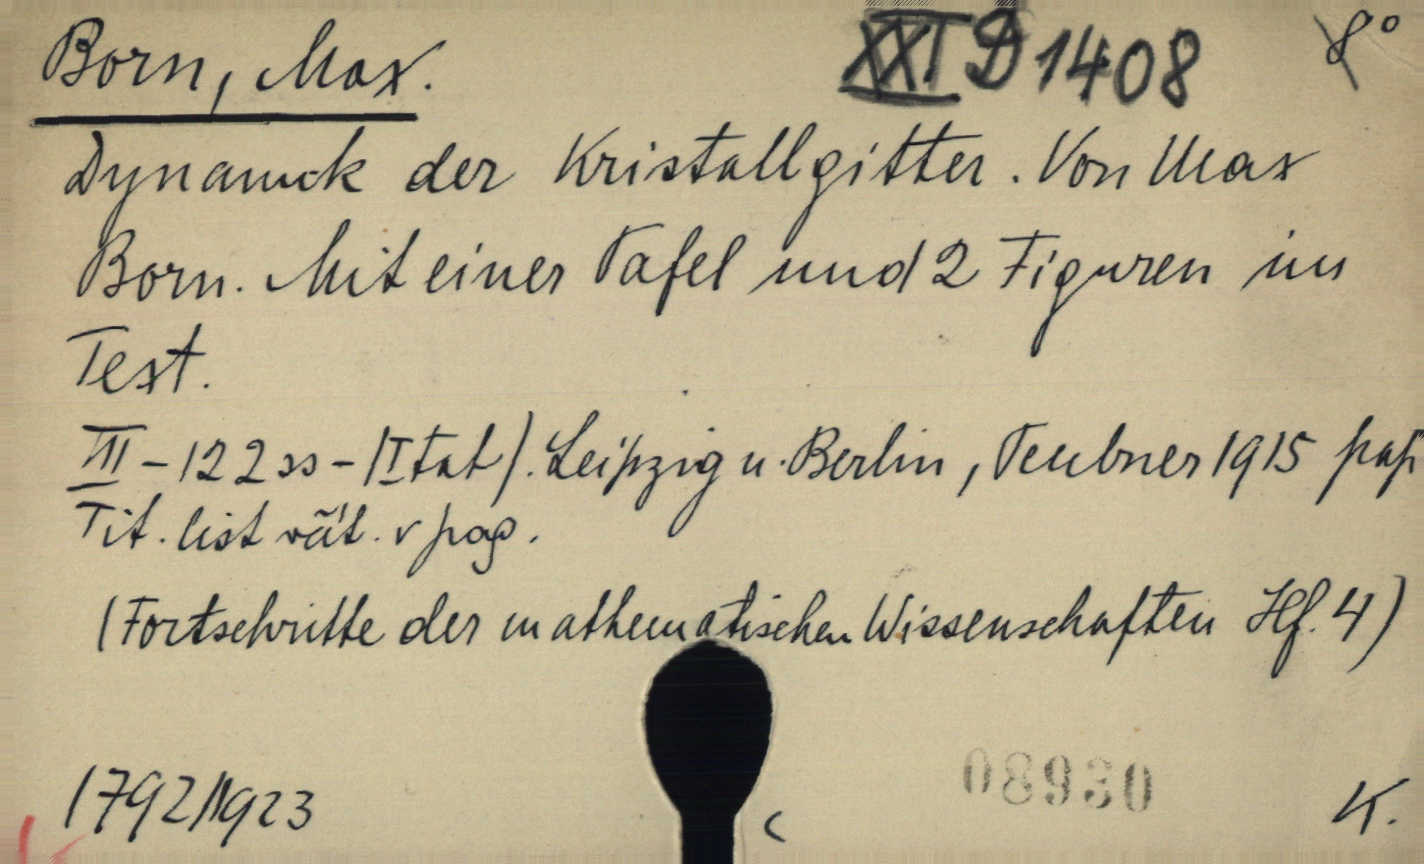 Born, Max.
XXI D 1408
8°
Dynamik der Kristallgitter. Von Max
Born. Mit einer Tafel und 2 Figuren im
Text.
VII - 122 ss - (I tab). Leipzig u. Berlin, Teubner 1915 pap
Tit. list vät. v pag.
(Fortschritte der mathematischen Wissenschaften Hf. 4)
1792/1923
K.